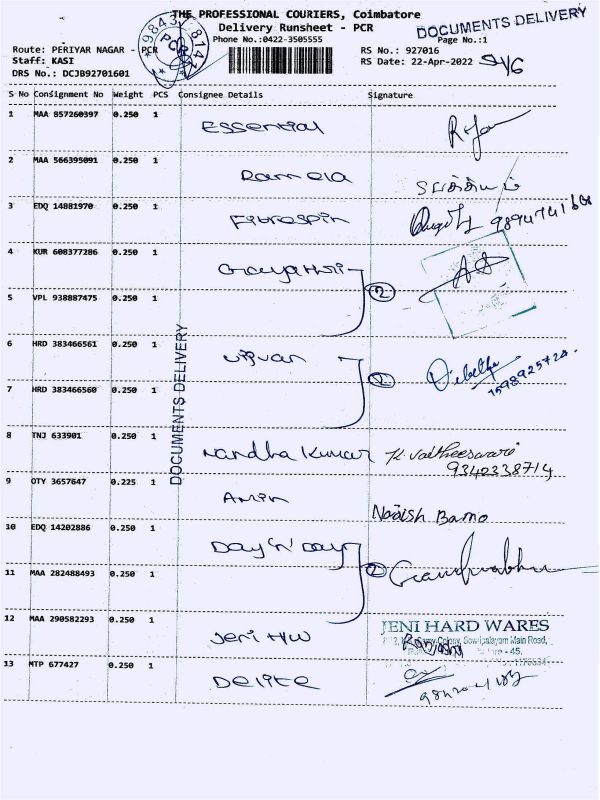 THE PROFESSIONAL COURIERS, Coimbatore
Delivery Runsheet - PCR
DOCUMENTS DELIVERY
Phone No.:0422-3505555
Page No.:1
Route: PERIYAR NAGAR - PCR
RS No.: 927016
Staff: KASI
RS Date: 22-Apr-2022
DRS No.: DCJB92701601
S No Consignment No Weight PCS Consignee Details Signature
1 MAA 857260397 0.250 1 Essential
2 MAA 566395091 0.250 1 Ramela
3 EDQ 14881970 0.250 1 Fibrespin
4 KUR 608377286 0.250 1
2
5 VPL 938887475 0.250 1
6 HRD 383466561 0.250 1
2
7 HRD 383466560 0.250 1
DOCUMENTS DELIVERY
8 TNJ 633901 0.250 1 Nandha Kumar
9340338714
9 OTY 3657647 0.225 1 Amin
10 EDQ 14202886 0.250 1 Day 'n' Day
2
11 MAA 282488493 0.250 1
12 MAA 290582293 0.250 1 Jeri H/W JENI HARD WARES
13 MTP 677427 0.250 1 Delite